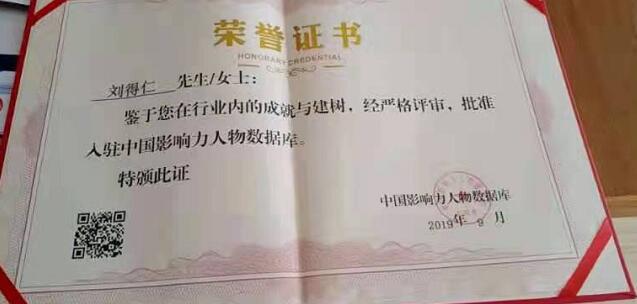 荣誉证书
HONORARY CREDENTIAL
刘得仁 先生/女士：
鉴于您在行业内的成就与建树，经严格评审，批准
入驻中国影响力人物数据库。
特颁此证
中国影响力人物数据库
2019年9月